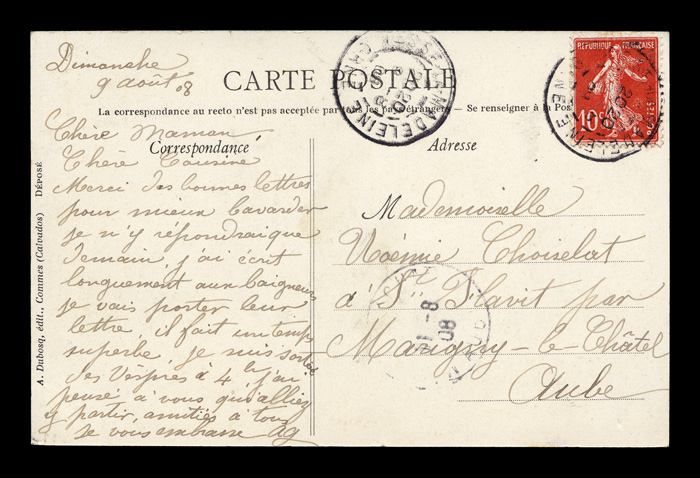 Dimanche
9 août 08
CARTE POSTALE
La correspondance au recto n'est pas acceptée par tous les pays étrangers — Se renseigner à la Pos
Correspondance
Chère Maman
Chère Cousine
Merci des bonnes lettres
pour mieux bavarder
je n'y répondrai que
demain, j'ai écrit
longuement aux baigneurs
je vais porter leur
lettre, il fait un temps
superbe, je suis sortie
des Vêpres à 4h j'ai
pensé à vous qui alliez
y partir, amitiés à tous
Je vous embrasse
A. Dubosq, édit., Commes (Calvados) DÉPOSÉ
Adresse
Mademoiselle
Noémie Choiselat
à St Flavit par
Marigny-le-Châtel
Aube
REPUBLIQUE FRANÇAISE
10
POSTES
MADELEINE
11-8
08